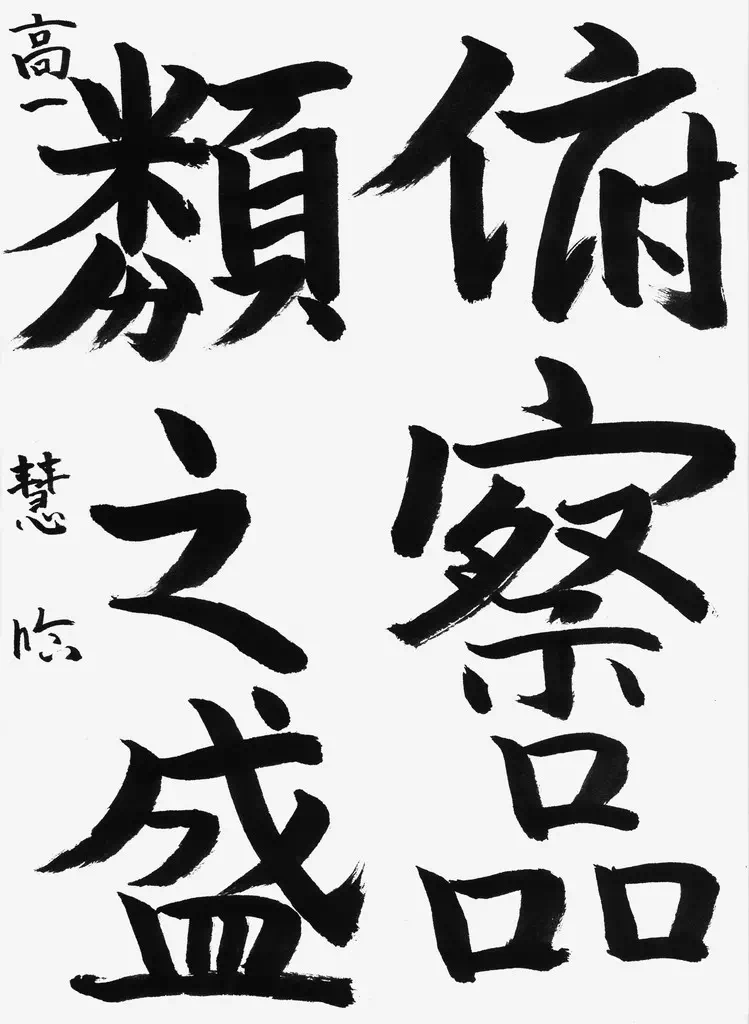 俯察品
類之盛
高一 慧 臨